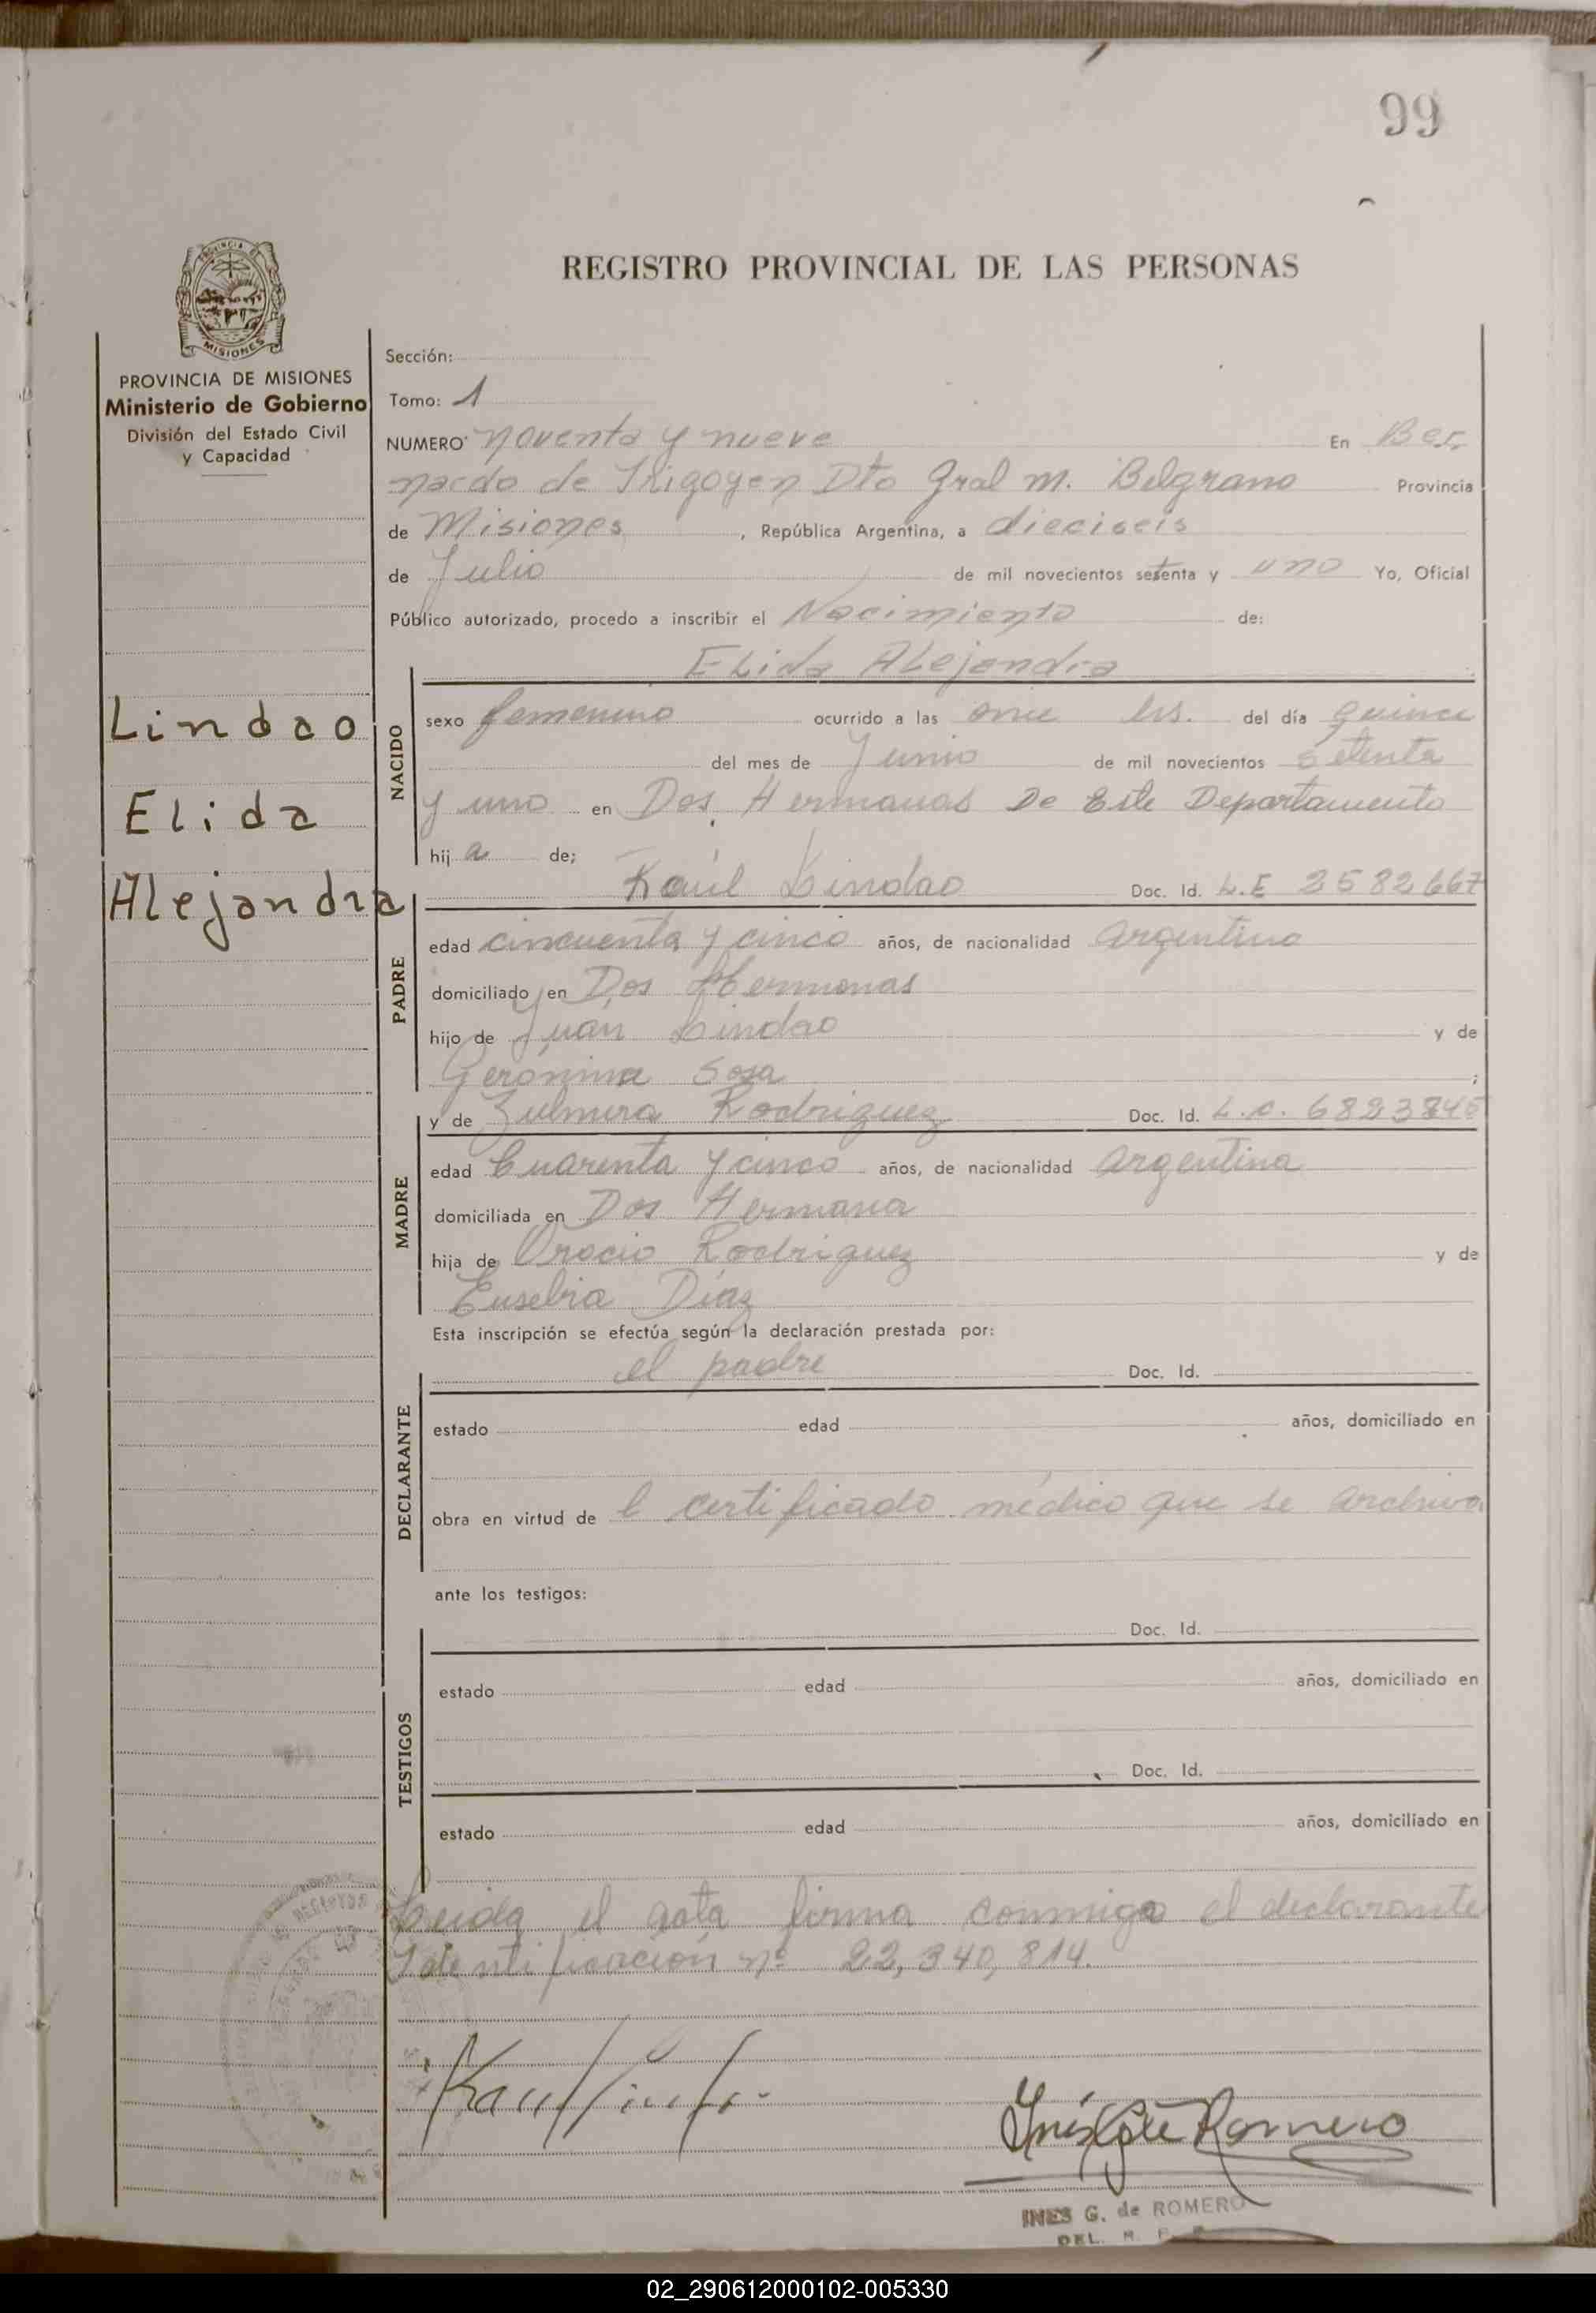 99
REGISTRO PROVINCIAL DE LAS PERSONAS
PROVINCIA DE MISIONES
Ministerio de Gobierno
División del Estado Civil
y Capacidad
Lindao
Elida
Alejandra
Sección:
Tomo: 1
NUMERO noventa y nueve En Ber
nardo de Irigoyen Dto Gral M. Belgrano Provincia
de Misiones, República Argentina, a dieciseis
de Julio de mil novecientos setenta y uno Yo, Oficial
Público autorizado, procedo a inscribir el Nacimiento de:
Elida Alejandra
NACIDO
sexo femenino ocurrido a las once hs. del día quince
del mes de Junio de mil novecientos setenta
y uno en Dos Hermanas De Este Departamento
hij a de;
Raúl Lindao Doc. Id. L.E 2582667
PADRE
edad cincuenta y cinco años, de nacionalidad argentina
domiciliado en Dos Hermanas
hijo de Juán Lindao y de
Gerónima Sosa ;
y de Zulmira Rodriguez Doc. Id. L.C. 6823845
MADRE
edad Cuarenta y cinco años, de nacionalidad argentina
domiciliada en Dos Hermana
hija de Oracio Rodriguez y de
Eusebia Díaz
Esta inscripción se efectúa según la declaración prestada por:
el padre Doc. Id.
DECLARANTE
estado edad años, domiciliado en
obra en virtud de l certificado médico que se archiva
ante los testigos:
Doc. Id.
TESTIGOS
estado edad años, domiciliado en
Doc. Id.
estado edad años, domiciliado en
Leida el acta firma conmigo el declarante
Identificación nº 22,340,814.
INES G. de ROMERO
DEL. R. P.
02_290612000102-005330